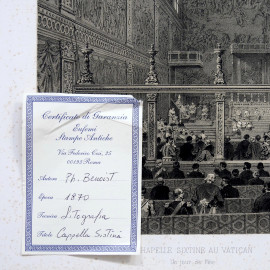 Certificato di Garanzia
Eufemi
Stampe Antiche
Via Federico Cesi, 25
00193 Roma
Autore Ph. Benoist
Epoca 1870
Tecnica Litografia
Titolo Cappella Sistina
CHAPELLE SIXTINE AU VATICAN